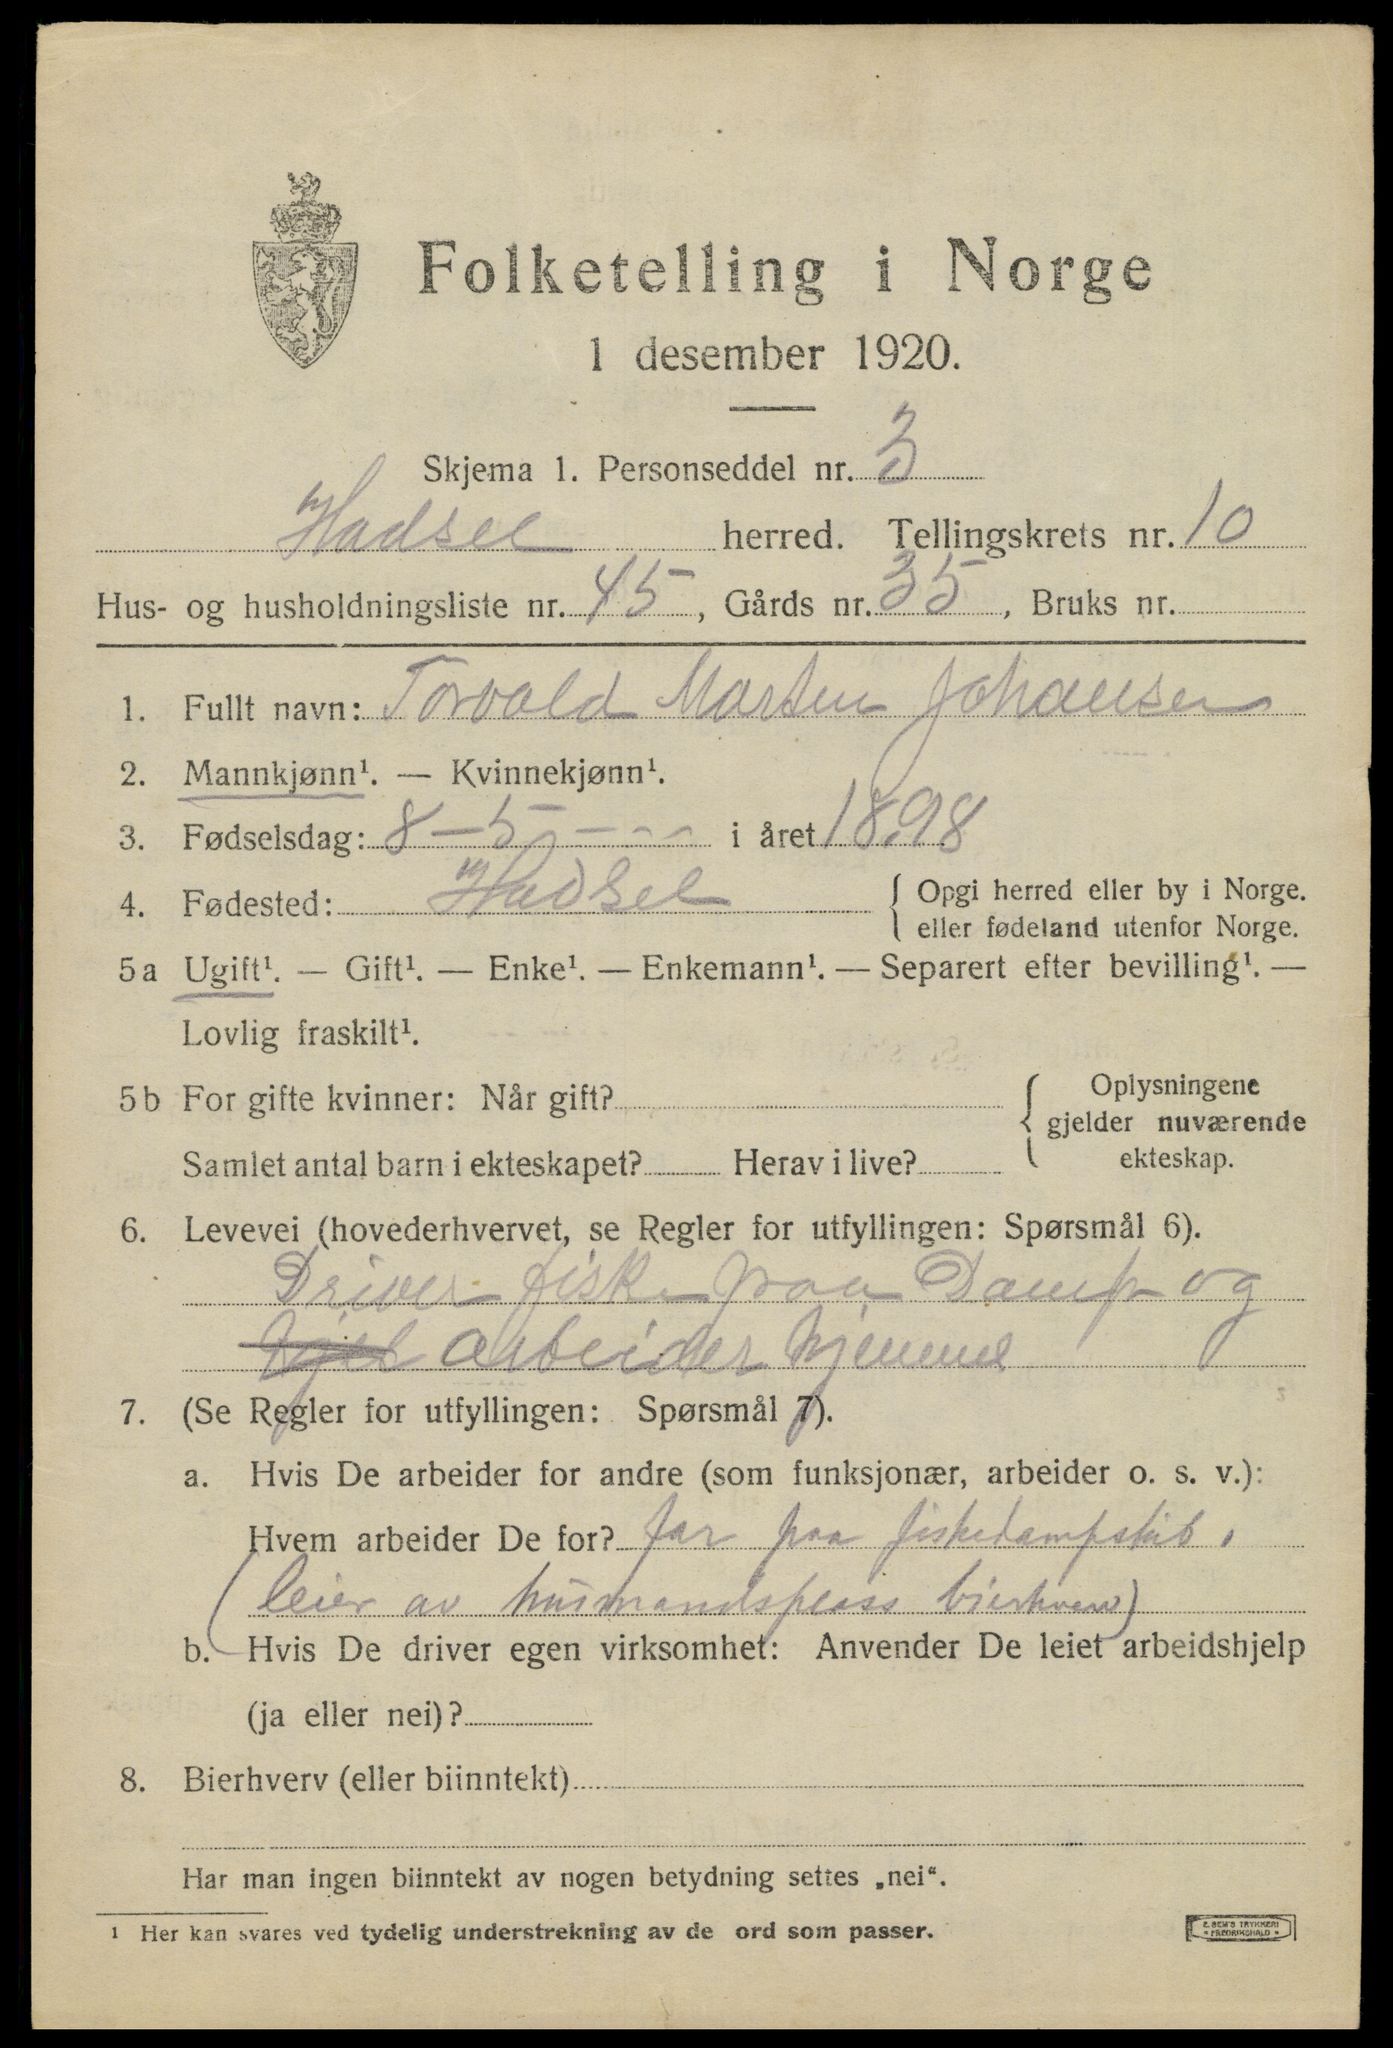 Folketelling i Norge
1 desember 1920.
Skjema 1. Personseddel nr. 3
Hadsel herred. Tellingskrets nr. 10
Hus- og husholdningsliste nr. 45, Gårds nr. 35, Bruks nr.
1. Fullt navn: Torvald Marten Johansen
2. Mannkjønn¹. — Kvinnekjønn¹.
3. Fødselsdag: 8-5- i året 1898
4. Fødested: Hadsel { Opgi herred eller by i Norge.
eller fødeland utenfor Norge.
5a Ugift¹. — Gift¹. — Enke¹. — Enkemann¹. — Separert efter bevilling¹. —
Lovlig fraskilt¹.
5b For gifte kvinner: Når gift? { Oplysningene
gjelder nuværende
Samlet antal barn i ekteskapet? Herav i live? ekteskap.
6. Levevei (hovederhvervet, se Regler for utfyllingen: Spørsmål 6).
Driver fiske paa Damp og
arbeider hjemme
7. (Se Regler for utfyllingen: Spørsmål 7).
a. Hvis De arbeider for andre (som funksjonær, arbeider o. s. v.):
Hvem arbeider De for? far paa fiskedampskib.
(leier av husmandsplass bierhverv)
b. Hvis De driver egen virksomhet: Anvender De leiet arbeidshjelp
(ja eller nei)?
8. Bierhverv (eller biinntekt)
Har man ingen biinntekt av nogen betydning settes „nei“.
¹ Her kan svares ved tydelig understrekning av de ord som passer.
E. SEM'S TRYKKERI
* FREDRIKSHALD *